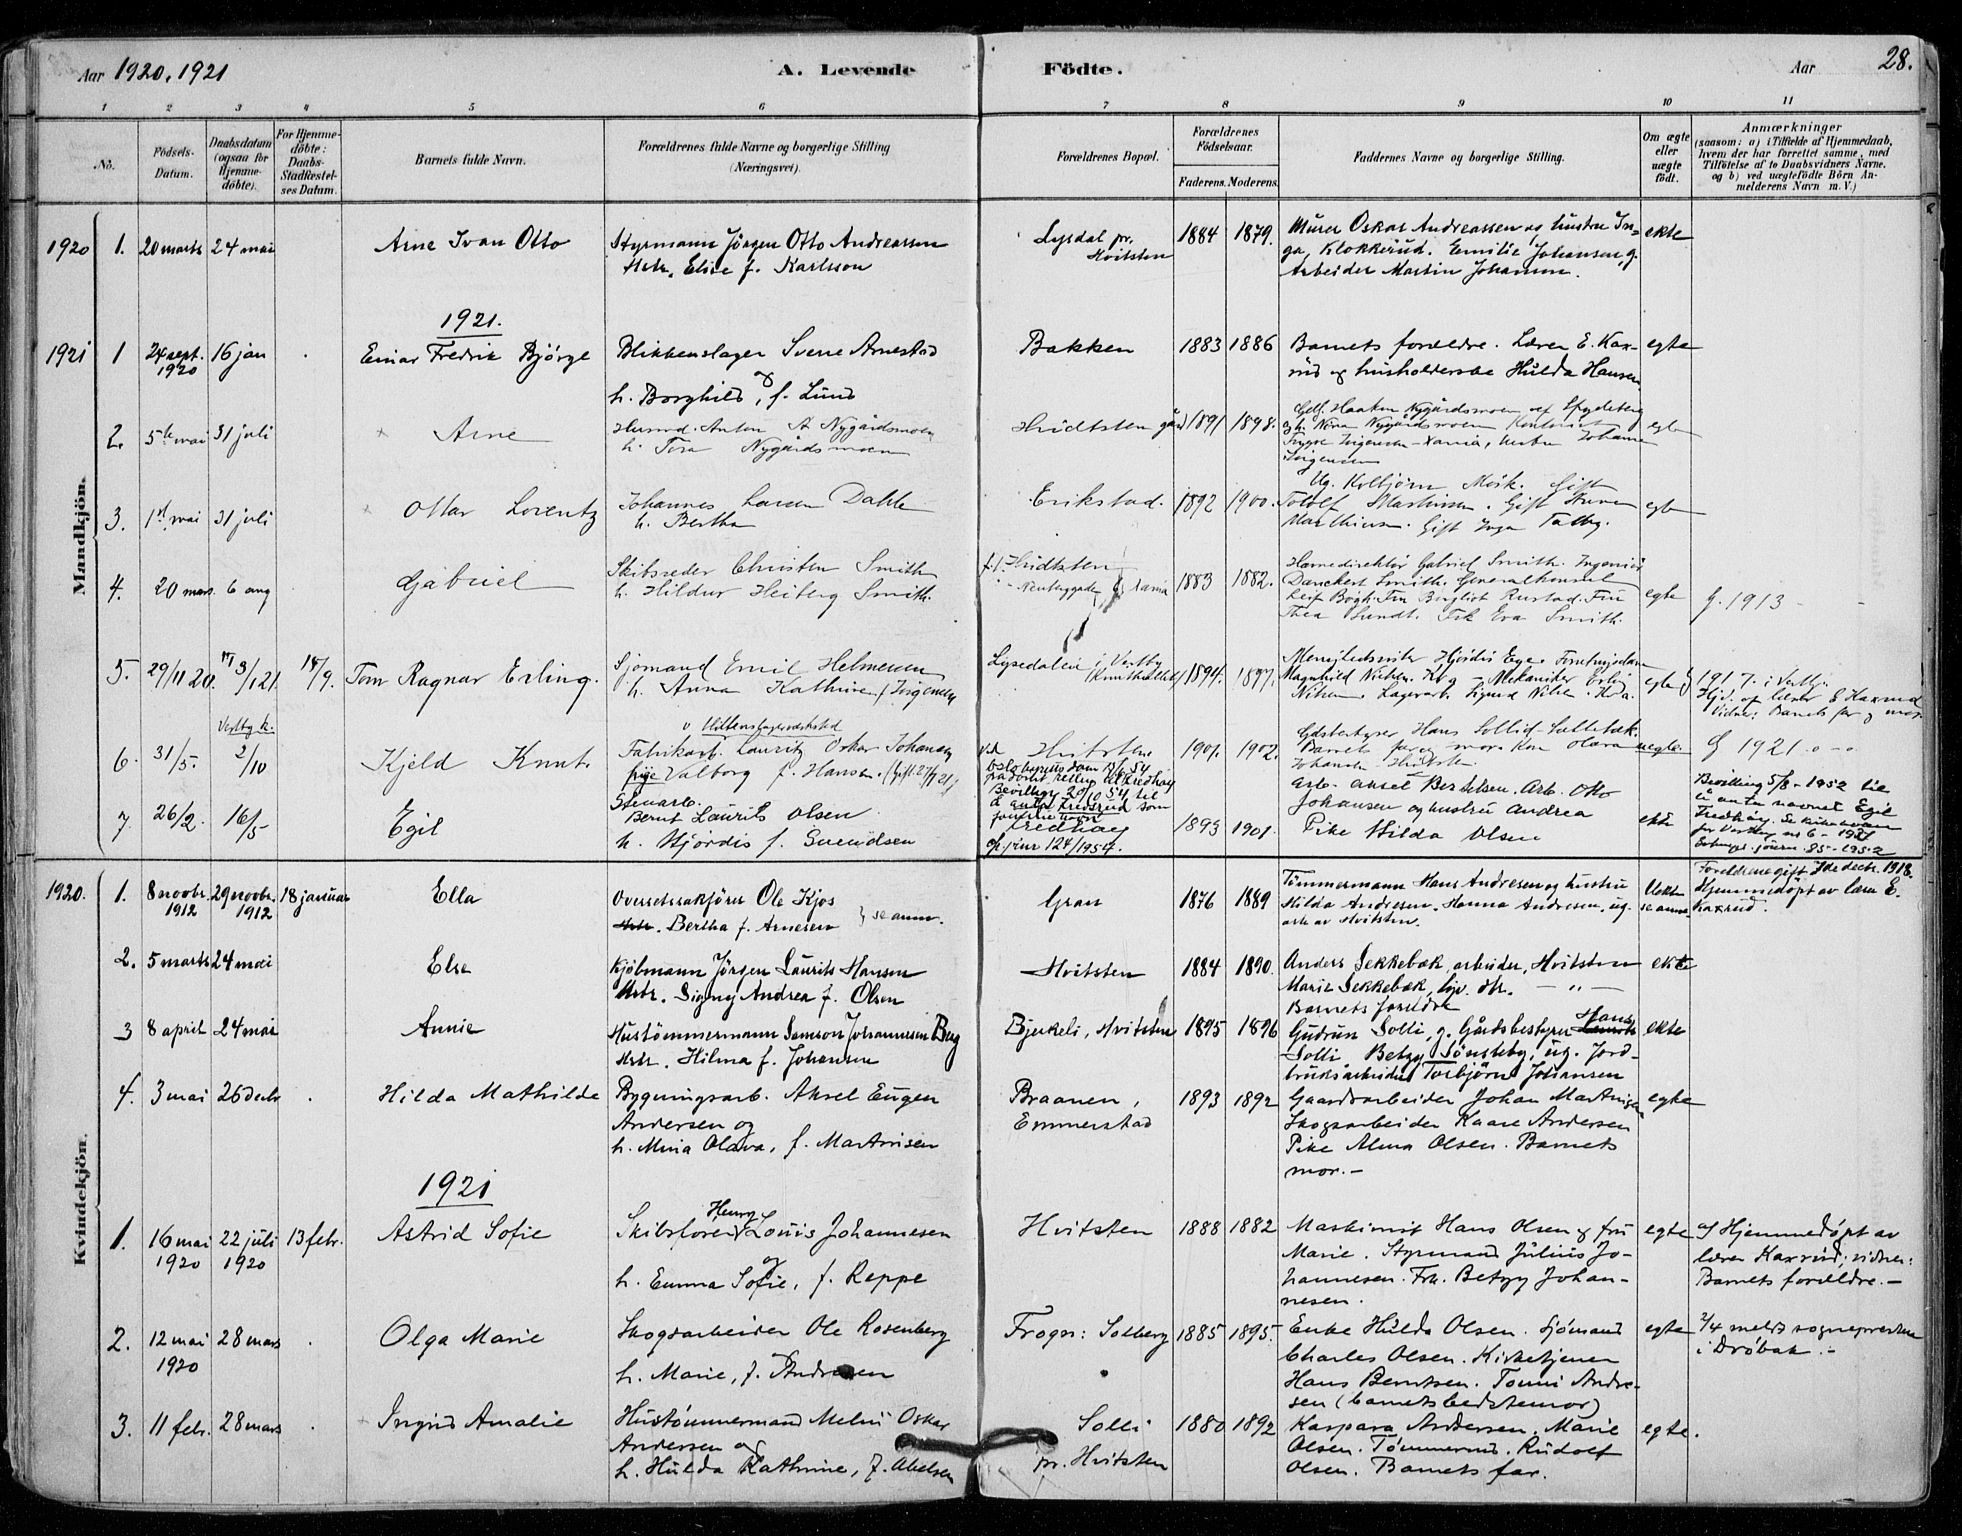 Aar 1920, 1921
A. Levende Födte.
Aar 28.
1 2 3 4 5 6 7 8 9 10 11
No.
Födsels-Datum.
Daabsdatum (ogsaa for Hjemmedöbte).
For Hjemmedöbte: Daabs-Stadfæstelses Datum.
Barnets fulde Navn.
Forældrenes fulde Navne og borgerlige Stilling (Næringsvei).
Forældrenes Bopæl.
Forældrenes Födselsaar.
Faderens. Moderens.
Faddernes Navne og borgerlige Stilling.
Om ægte eller uægte födt.
Anmærkninger
(saasom: a) i Tilfælde af Hjemmedaab, hvem der har forrettet samme, med Tilföielse af to Daabsvidners Navne. og b) ved uægtefödte Börn Anmelderens Navn m. V.)
Mandkjön.
1920 1. 20 marts 24 mai Arne Ivan Otto
Styrmann Jörgen Otto Andreassen
Hstr. Elise f. Karlsson
Lysdal pr. Hvitsten
1884 1879.
Murer Oskar Andreassen og hustru In-
ga, Klokkerud. Emilie Johansen, g.
Arbeider Martin Johansen.
ekte
1921.
1921 1 24 sept. 1920 16 jan Einar Fredrik Björge
Blikkenslager Sverre Arnestad
og
h. Borghild, f. Lund
Bakken 1883 1886
Barnets forældre. Lærer E. Kax-
rud og husholderske Hulda Hansen
egte
2. 5te mai 31 juli Arne
Anton A Nygårdsmoen
h. Tora Nygårdsmoen
Hvidtsten gård 1891 1898.
Haakon Nygårdsmoen
egte
3. 1st mai 31 juli Ottar Lorentz
Johannes Larsen Dahle
h. Bertha
Erikstad. 1892 1900.
Ug. Kolbjørn Mørk. Gift
egte
4. 20 mars 6 aug Gabriel
Skibsreder Christen Smith
h. Hildur Heiberg Smith.
f. t. Hvidtsten
1883 1882.
Havnedirektör Gabriel Smith. Ingeniör
Danckert Smith. Generalkonsul
Leif Bögh. Fru Borgliot Rustad. Fru
Thea Sundt. Frk Eva Smith.
egte
g. 1913
5. 29/11 20. 3/1 21. 18/9. Tom Ragnar Erling.
Sjømand Emil Helmersen
h. Anna Kathrine f. Jørgensen
Lysedalen i Vestby
1894. 1897.
Magnhild Nilsen. Kra - Mekaniker Erling
Nilsen. Lagerarb. Sigurd Nilsen. Kra.
egte
g 1917. i Vestby.
Hj.d. af lærer E Kaxrud
Vidner: Barnets far og mor.
Vestby k.
6. 31/5. 2/10 Kjeld Knut.
v Blikkenslagerværksted
Fabrikarb. Lauritz Oskar Johansen
pige Valborg f. Hansen.
Hvitsten
1901. 1902.
Gårdsbestyrer Hans Sollid.
Barnets far og mor. Kon Olava
Johansen Hvitsten.
uegte.
g 1921
7. 26/2. 16/5 Egil
Stenarb.
Bernt Laurits Olsen
h. Hjördis f. Svendsen
Fredhøy
jnr 124/1954.
1893 1901.
Arb. Aksel Berntsen. Arb. Otto
Johansen og hustru Andrea
Pike Hilda Olsen
ekte
Bevilling 5/8-1952 til
å anta navnet Egil
Fredhøy.
Kvindekjön.
1920. 1. 8 novbr. 1912 29 novbr. 1912 18 januar Ella
Overretssakförer Ole Kjos
Hstr. Bertha f. Arnesen } se anm.
Gran 1876 1889
Tömmermann Hans Andresen og hustru
Hilda Andresen. Hanna Andresen, ug.
arb av Hvitsten.
Uekte se anm.
Foreldrene gift 3die decbr. 1918.
Hjemmedöpt av lærer E.
Kaxrud.
2. 5 marts 24 mai Else
Kjöbmann Jörgen Laurits Hansen
Hstr. Signy Andrea f. Olsen
Hvitsten 1884 1890.
Anders Sekkebæk, arbeider, Hvitsten
Marie Sekkebæk, hjv. dtr. — „ —
Barnets foreldre
ekte
3 8 april 24 mai Annie
Hustömmermann Samson Johannesen Berg
Hstr. Hilma f. Johansen
Bjerkeli, Hvitsten 1895 1896
Gudrun Solli, g. Gårdsbestyrer Hans
Solli Betzy Sönsteby, ug. Jord-
bruksarbeider Torbjörn Johansen
ekte
4. 3 mai 26 decbr Hilda Mathilde
Bygningsarb. Aksel Eugen
Andersen og
h. Mina Olava, f. Martinsen
Braanen, Emmerstad
1893 1892
Gaardsarbeider Johan Martinsen
Skogsarbeider Kaare Andersen
Pike Alma Olsen. Barnets
mor. —
egte
1921
1. 16 mai 1920 22 juli 1920 13 febr. Astrid Sofie
Skibsförer Henry Louis Johannesen
og
h. Emma Sofie, f. Reppe
Hvitsten 1888 1882
Maskinist Hans Olsen og fru
Marie. Styrmand Julius Jo-
hannesen. Frk. Betzy Johan-
nesen.
egte
a) Hjemmedöpt av
lærer Kaxrud; vidner:
Barnets forældre. —
2. 12 mai 1920 28 mars Olga Marie
Skogsarbeider Ole Rosenberg
h. Marie, f. Andresen
Frogn: Solberg 1885 1895.
Enke Hulda Olsen. Sjömand
Charles Olsen. Kirketjener
Hans Berntsen. Tomi Andre-
sen (barnets bedstemor)
egte
2/4 meldt sognepresten
i Dröbak. —
3. 11 febr. 28 mars Ingrid Amalie
Hustömmermand Melvi Oskar
Andersen og
h. Hulda Kathrine, f. Abelsen
Solli pr. Hvitsten
1880 1892
Kaspara Andersen. Marie
Olsen. Tömmermd. Rudolf
Olsen. Barnets far.
egte.